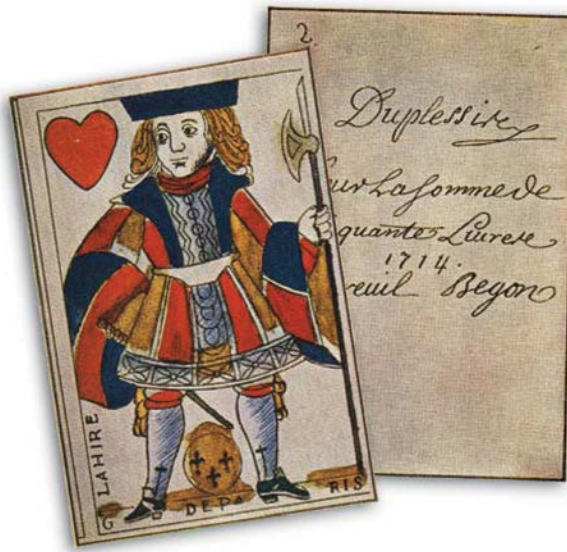 2.
Duplessis
la Somme de
quante Livres
1714.
reuil Begon
LAHIRE
DE PA RIS